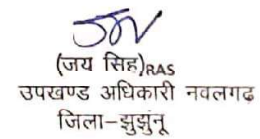 (जय सिंह)RAS
उपखण्ड अधिकारी नवलगढ
जिला-झुझुंनू